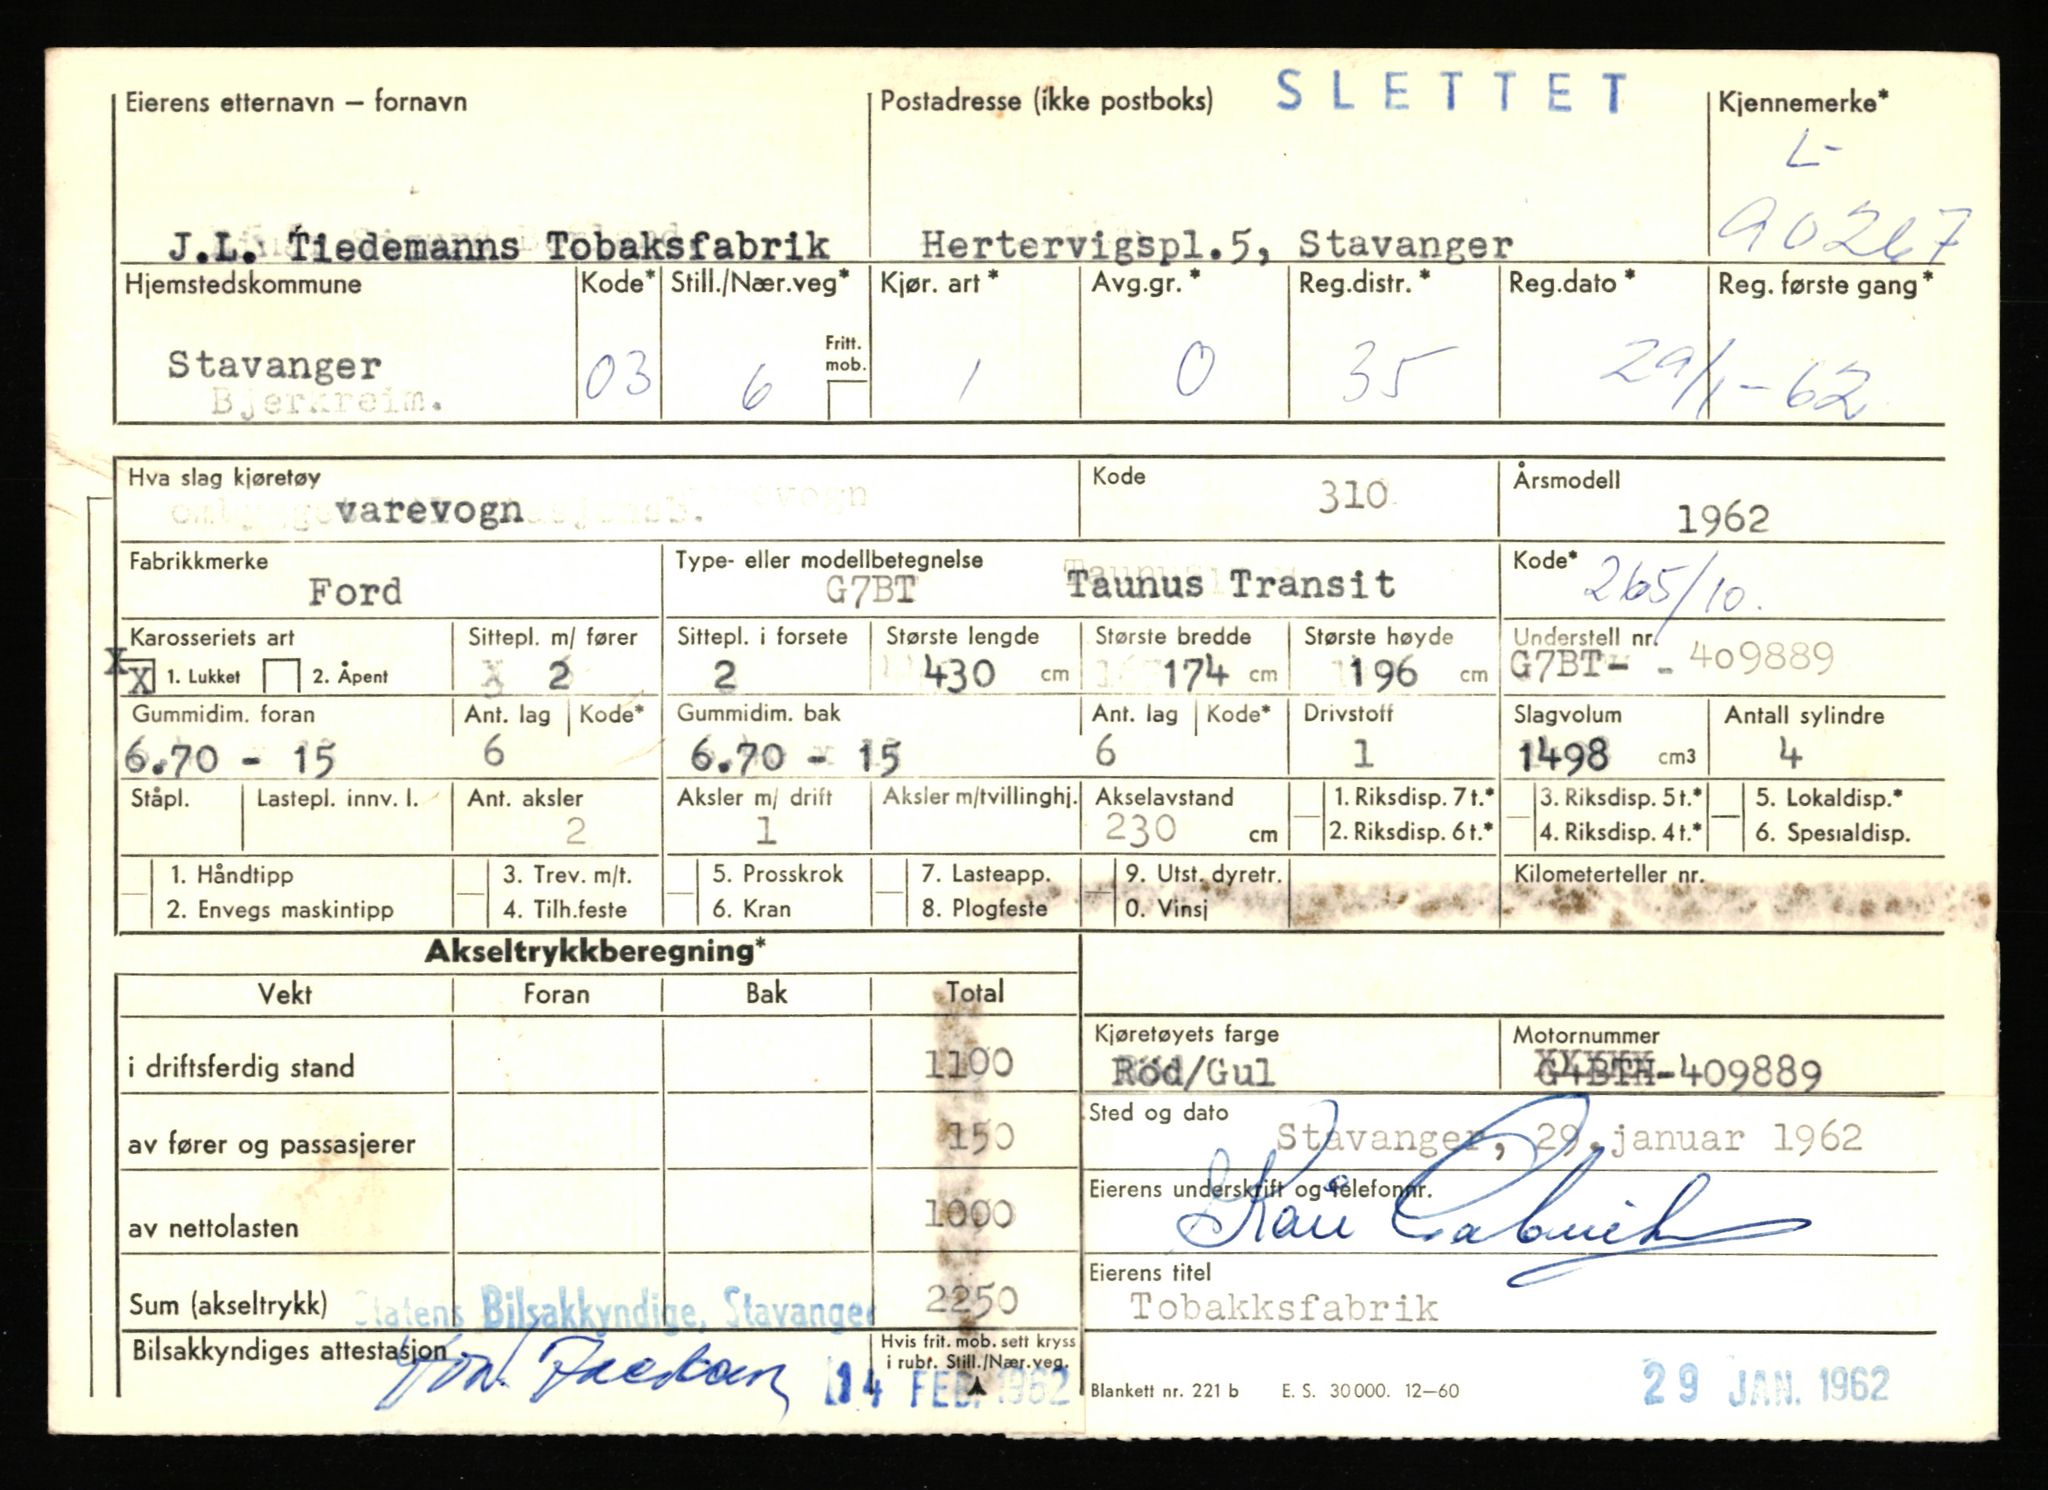 SLETTET
Eierens etternavn – fornavn
Postadresse (ikke postboks)
Kjennemerke*
L-
90267
J.L. Tiedemanns Tobaksfabrik
Hertervigspl.5, Stavanger
Hjemstedskommune Kode* Still./Nær.veg* Kjør. art* Avg.gr.* Reg.distr.* Reg.dato* Reg. første gang*
Fritt. mob.
Stavanger 03 6 1 0 35 29/1-62
Bjerkreim.
Hva slag kjøretøy Kode Årsmodell
varevogn 310 1962
Fabrikkmerke Type- eller modellbetegnelse Kode*
Ford G7BT Taunus Transit 265/10.
Karosseriets art Sittepl. m/ fører Sittepl. i forsete Største lengde Største bredde Største høyde Understell nr.
X X 1. Lukket 2. Åpent 2 2 430 cm 174 cm 196 cm G7BT- - 409889
Gummidim. foran Ant. lag Kode* Gummidim. bak Ant. lag Kode* Drivstoff Slagvolum Antall sylindre
6.70 - 15 6 6.70 - 15 6 1 1498 cm3 4
Ståpl. Lastepl. innv. l. Ant. aksler Aksler m/ drift Aksler m/tvillinghj. Akselavstand 1. Riksdisp. 7 t.* 3. Riksdisp. 5 t.* 5. Lokaldisp.*
2 1 230 cm 2. Riksdisp. 6 t.* 4. Riksdisp. 4 t.* 6. Spesialdisp.
1. Håndtipp 3. Trev. m/t. 5. Prosskrok 7. Lasteapp. 9. Utst. dyretr. Kilometerteller nr.
2. Envegs maskintipp 4. Tilh.feste 6. Kran 8. Plogfeste 0. Vinsj
Akseltrykkberegning*
Vekt Foran Bak Total
i driftsferdig stand 1100
av fører og passasjerer 150
av nettolasten 1000
Sum (akseltrykk) 2250
Statens Bilsakkyndige, Stavanger
Bilsakkyndiges attestasjon
Hvis frit. mob. sett kryss
i rubr. Still./Nær.veg.
14 FEB. 1962
Kjøretøyets farge Motornummer
Röd/Gul G4BTH-409889
Sted og dato
Stavanger, 29.januar 1962
Eierens underskrift og telefonnr.
Eierens titel
Tobakksfabrik
Blankett nr. 221 b E. S. 30 000. 12–60
29 JAN. 1962